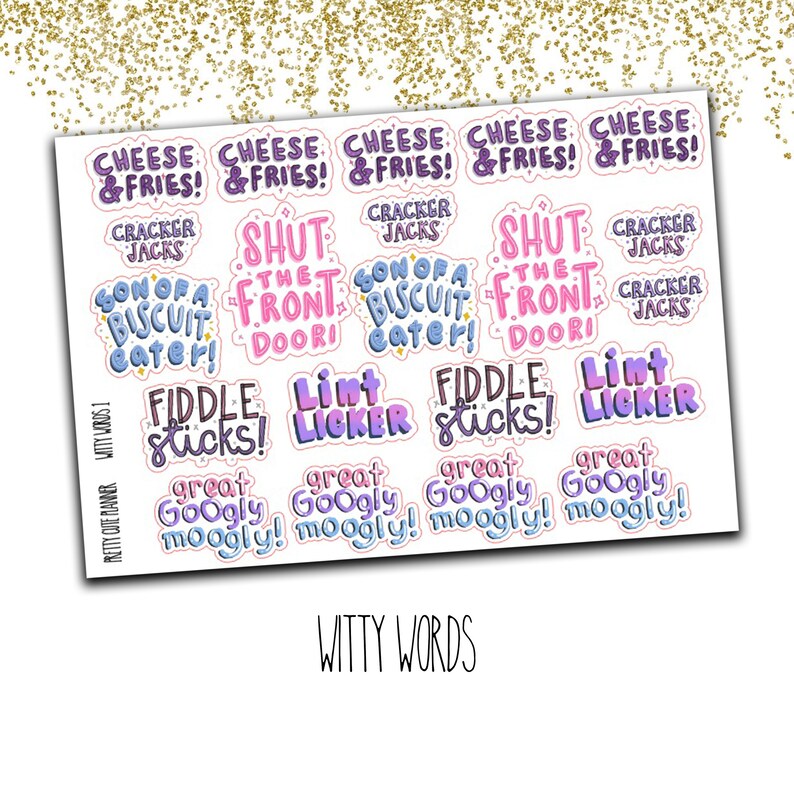 CHEESE
&FRIES!
CHEESE
&FRIES!
CHEESE
&FRIES!
CHEESE
&FRIES!
CHEESE
&FRIES!
CRACKER
JACKS
SHUT
THE
FRONT
DOOR!
CRACKER
JACKS
SHUT
THE
FRONT
DOOR!
CRACKER
JACKS
SON OF A
BISCUIT
eater!
SON OF A
BISCUIT
eater!
CRACKER
JACKS
FIDDLE
sticks!
Lint
LICKER
FIDDLE
sticks!
Lint
LICKER
great
GOOgly
moogly!
great
GOOgly
moogly!
great
GOOgly
moogly!
great
GOOgly
moogly!
PRETTY CUTE PLANNER
WITTY WORDS 1
WITTY WORDS